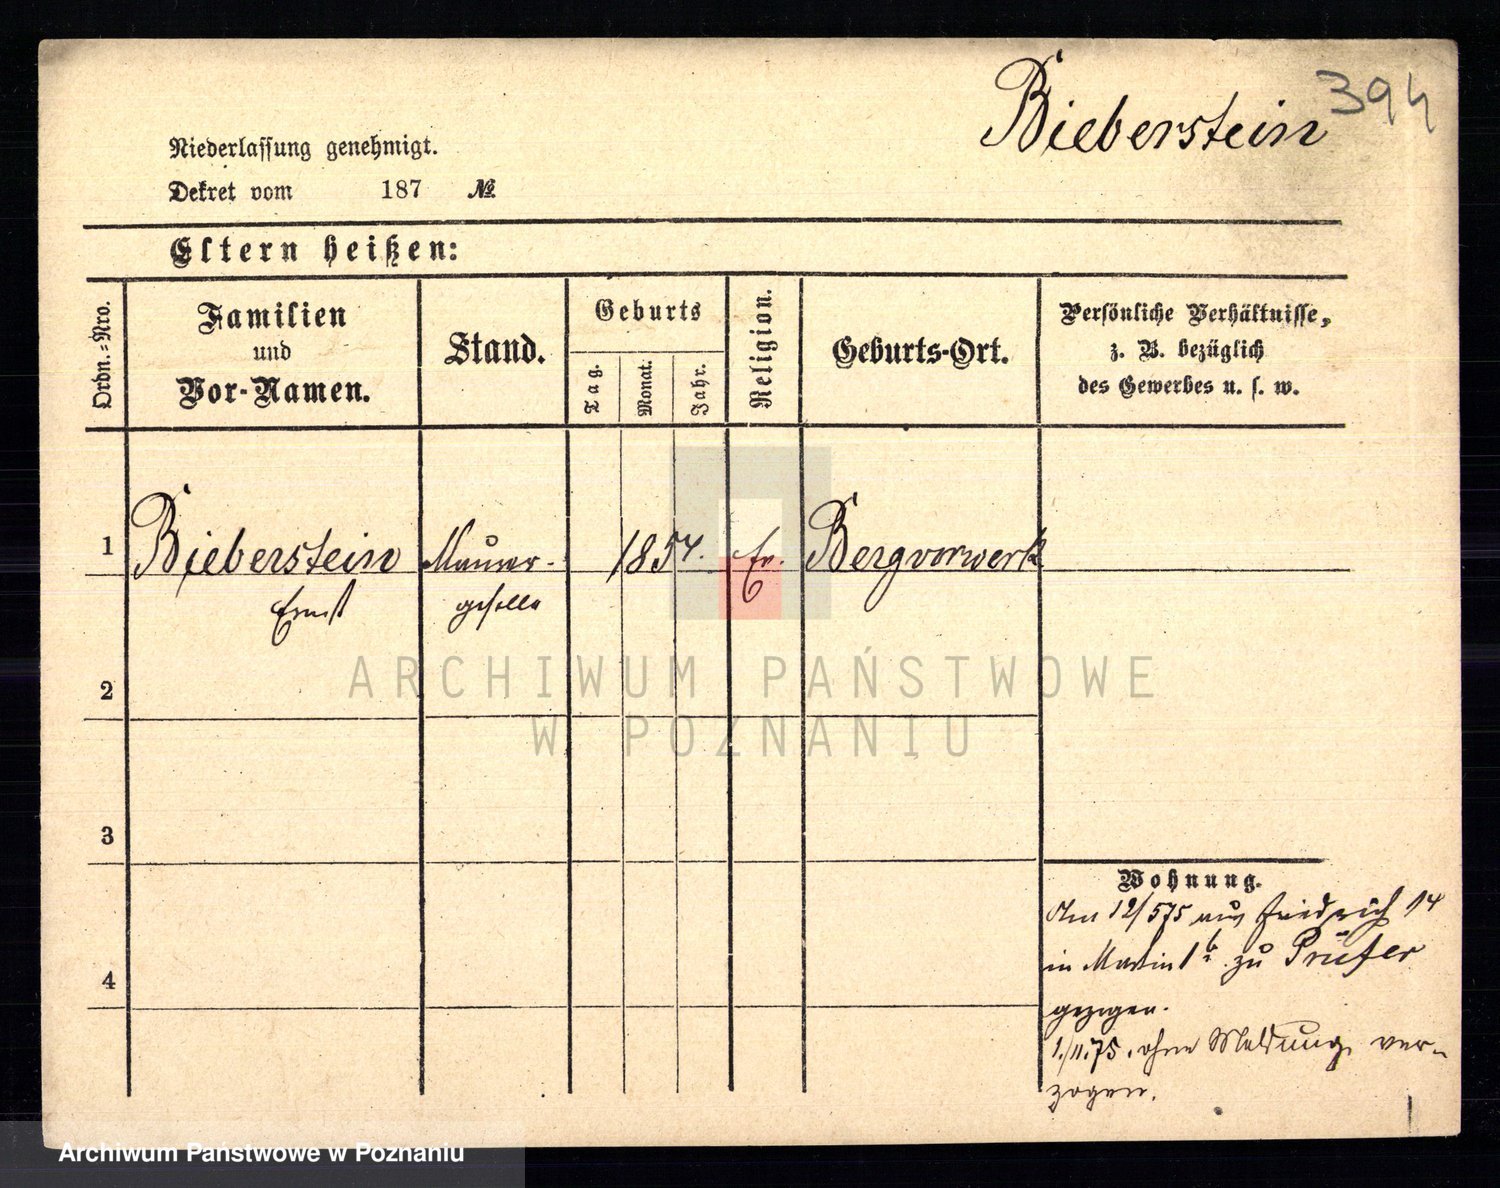 Bieberstein
394
Niederlassung genehmigt.
Dekret vom 187 №
Eltern heißen:
Ordn.-Nro.
Familien und Vor-Namen.
Stand.
Geburts
Tag.
Monat.
Jahr.
Religion.
Geburts-Ort.
Persönliche Verhältnisse,
z. B. bezüglich
des Gewerbes u. s. w.
1 Bieberstein Maurer- 1854. Ev. Bergvorwerk
Ernst geselle
2
3
4
Wohnung.
Am 12/5 75 aus Friedrich 14
in Martin 1 zu Prüfer
gezogen.
1./11.75. ohne Meldung ver-
zogen.
ARCHIWUM PAŃSTWOWE
W POZNANIU
Archiwum Państwowe w Poznaniu